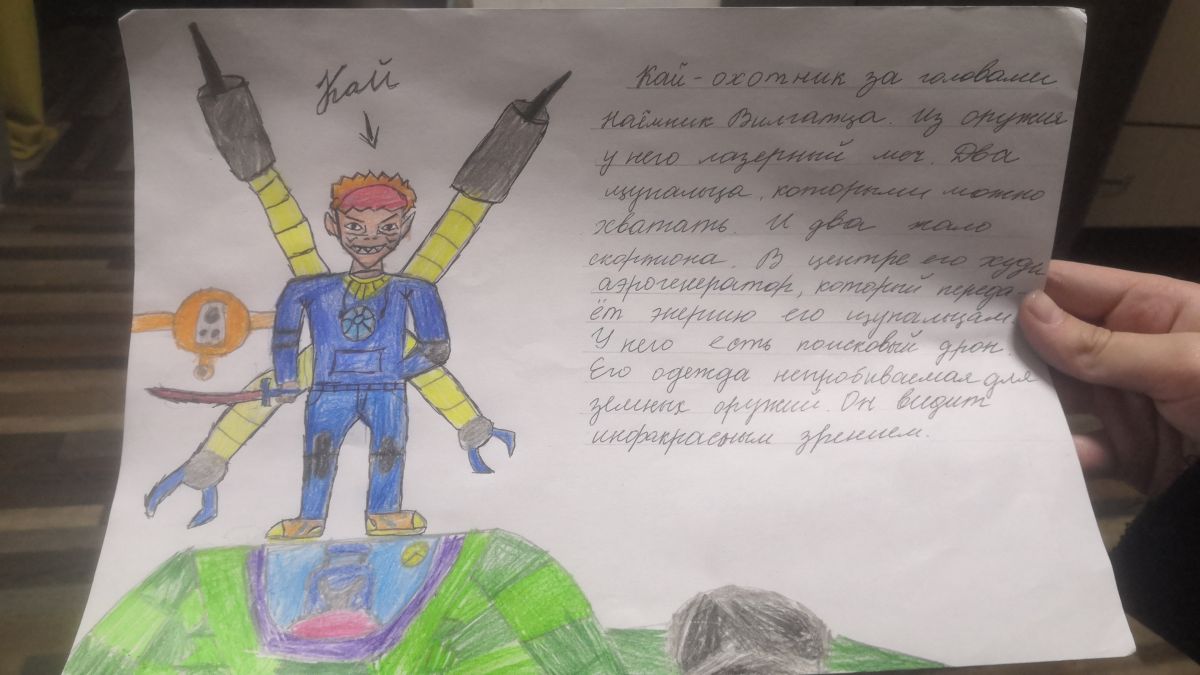 Кай
Кай - охотник за головами
Наёмник Вилгатца. Из оружия
у него лазерный меч. Два
щупальца, которыми можно
хватать. И два жало
скорпиона. В центре его худи
аэрогенератор, который переда-
ёт энергию его щупальцам.
У него есть поисковый дрон.
Его одежда непробиваемая для
земных оружий. Он видит
инфракрасным зрением.